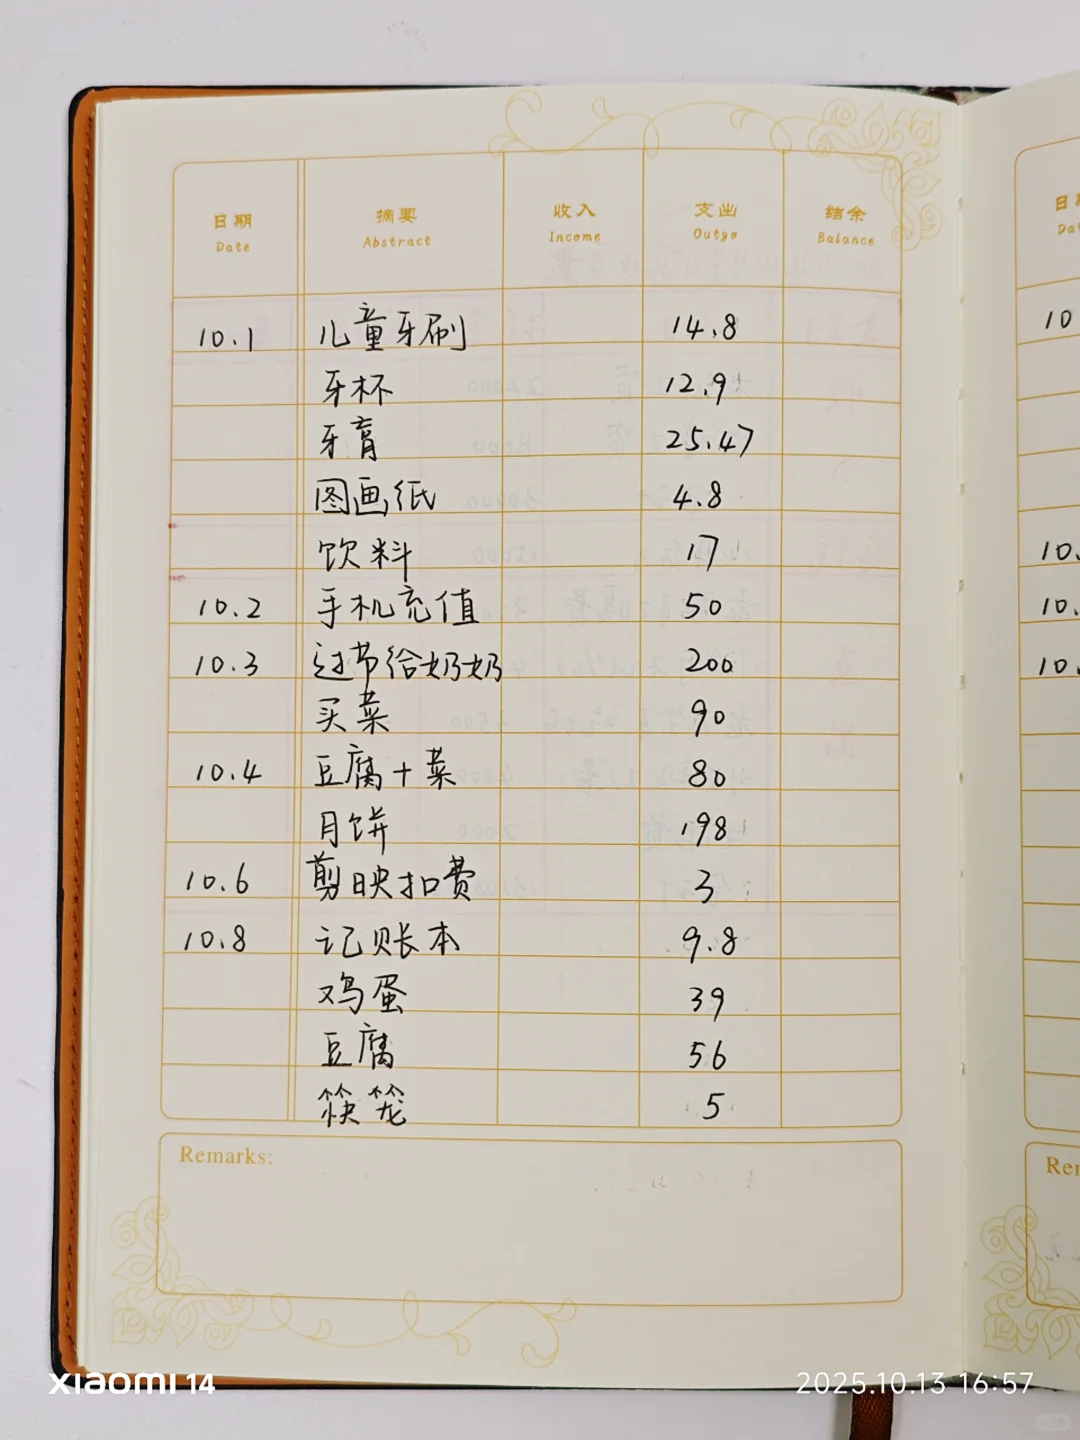 日期 摘要 收入 支出 结余
Date Abstract Income Outgo Balance
10.1 儿童牙刷 14.8
牙杯 12.9
牙膏 25.47
图画纸 4.8
饮料 17
10.2 手机充值 50
10.3 过节给奶奶 200
买菜 90
10.4 豆腐+菜 80
月饼 198
10.6 剪映扣费 3
10.8 记账本 9.8
鸡蛋 39
豆腐 56
筷笼 5
Remarks:
日
Dat
10
10.
10.
10.
Rem
xiaomi 14
2025.10.13 16:57